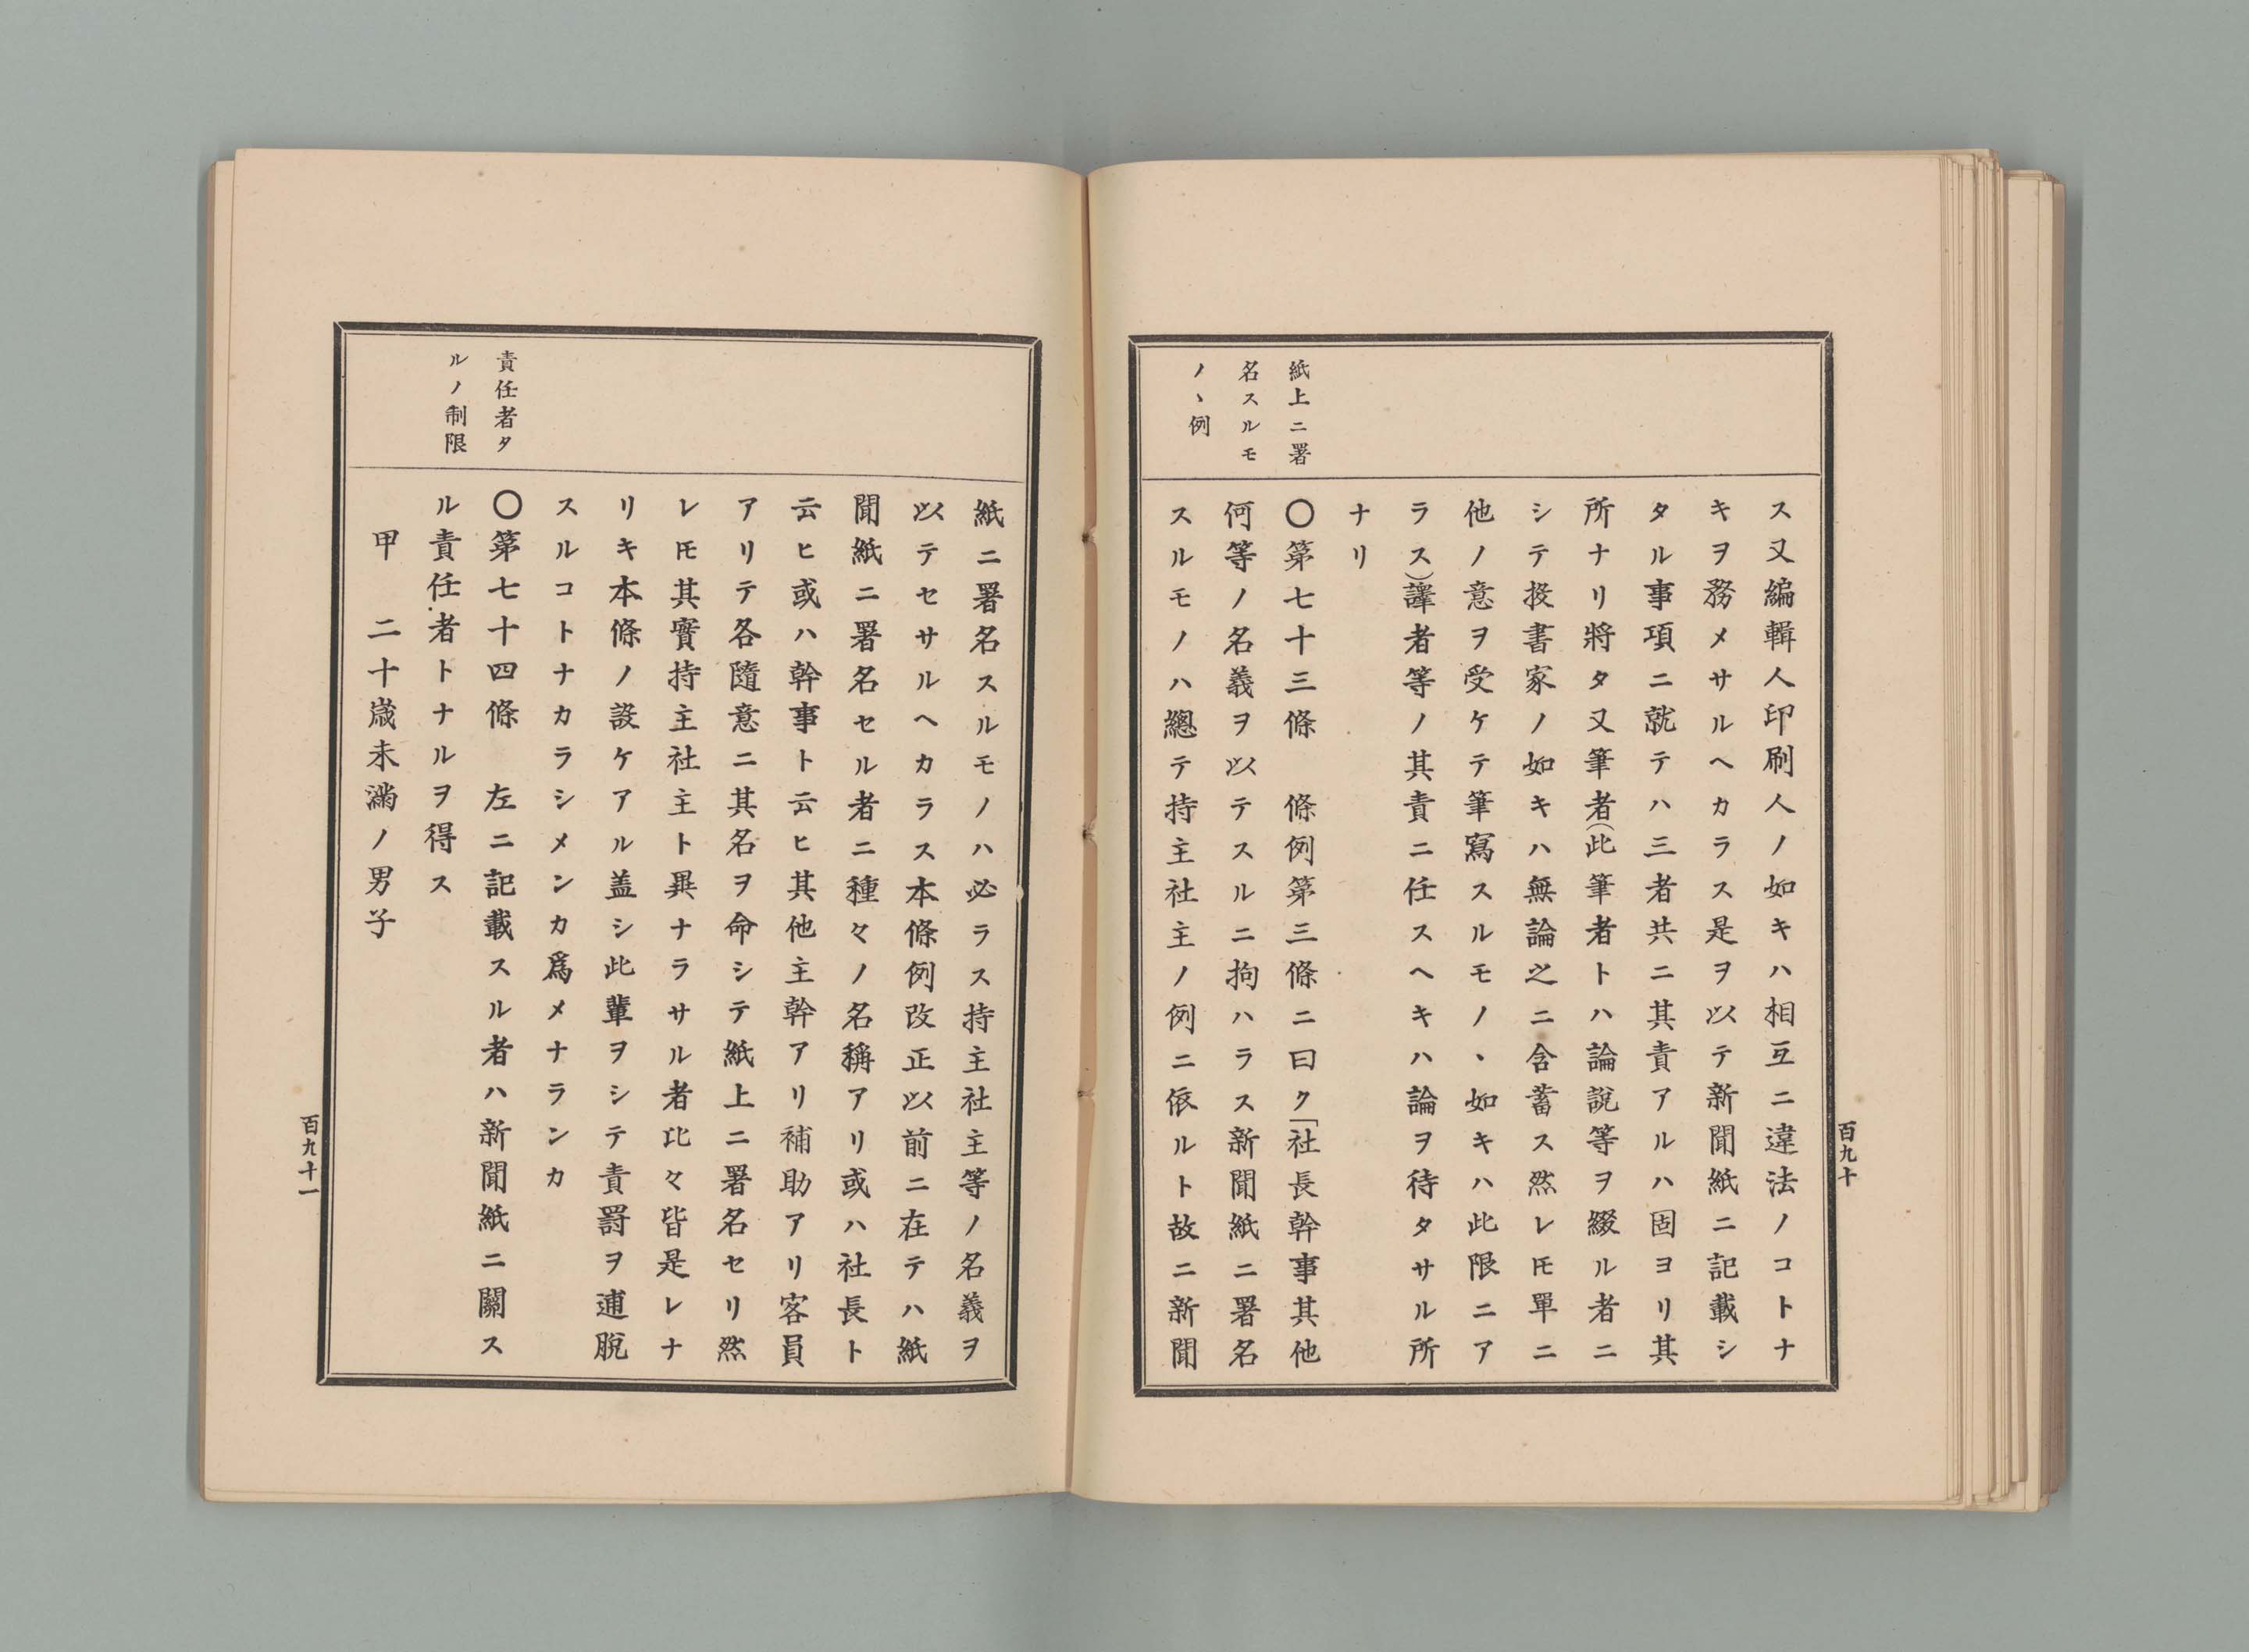 百九十
ス又編輯人印刷人ノ如キハ相互ニ違法ノコトナ
キヲ務メサルヘカラス是ヲ以テ新聞紙ニ記載シ
タル事項ニ就テハ三者共ニ其責アルハ固ヨリ其
所ナリ將タ又筆者(此筆者トハ論說等ヲ綴ル者ニ
シテ投書家ノ如キハ無論之ニ含蓄ス然レ𪜈單ニ
他ノ意ヲ受ケテ筆寫スルモノヽ如キハ此限ニア
ラス)譯者等ノ其責ニ任スヘキハ論ヲ待タサル所
ナリ
紙上ニ署
名スルモ
ノヽ例
〇第七十三條　條例第三條ニ曰ク「社長幹事其他
何等ノ名義ヲ以テスルニ拘ハラス新聞紙ニ署名
スルモノハ總テ持主社主ノ例ニ依ルト故ニ新聞
紙ニ署名スルモノハ必ラス持主社主等ノ名義ヲ
以テセサルヘカラス本條例改正以前ニ在テハ紙
聞紙ニ署名セル者ニ種々ノ名稱アリ或ハ社長ト
云ヒ或ハ幹事ト云ヒ其他主幹アリ補助アリ客員
アリテ各隨意ニ其名ヲ命シテ紙上ニ署名セリ然
レ𪜈其實持主社主ト異ナラサル者比々皆是レナ
リキ本條ノ設ケアル盖シ此輩ヲシテ責罰ヲ逋脫
スルコトナカラシメンカ爲メナランカ
責任者タ
ルノ制限
〇第七十四條　左ニ記載スル者ハ新聞紙ニ關ス
ル責任者トナルヲ得ス
甲　二十歲未滿ノ男子
百九十一